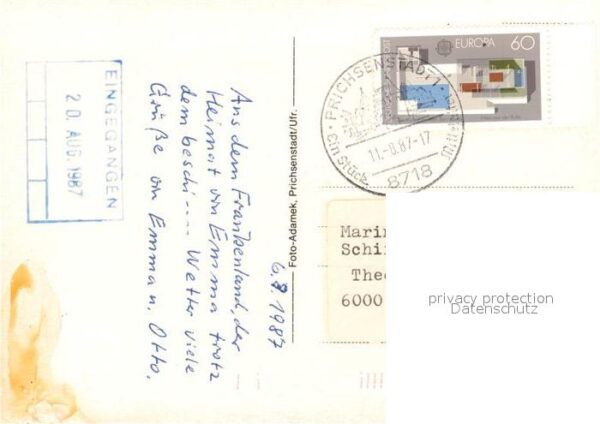 EINGEGANGEN
20. AUG. 1987
6.8.1987
Aus dem Frankenland, der
Heimat von Emma trotz
dem besch.... Wetter viele
Grüße von Emma u. Otto.
Foto-Adamek, Prichsenstadt/Ufr.
EUROPA 60
PRICHSENSTADT 1
11.-8.87-17
8718
Marin
Schi
Theo
6000
privacy protection
Datenschutz